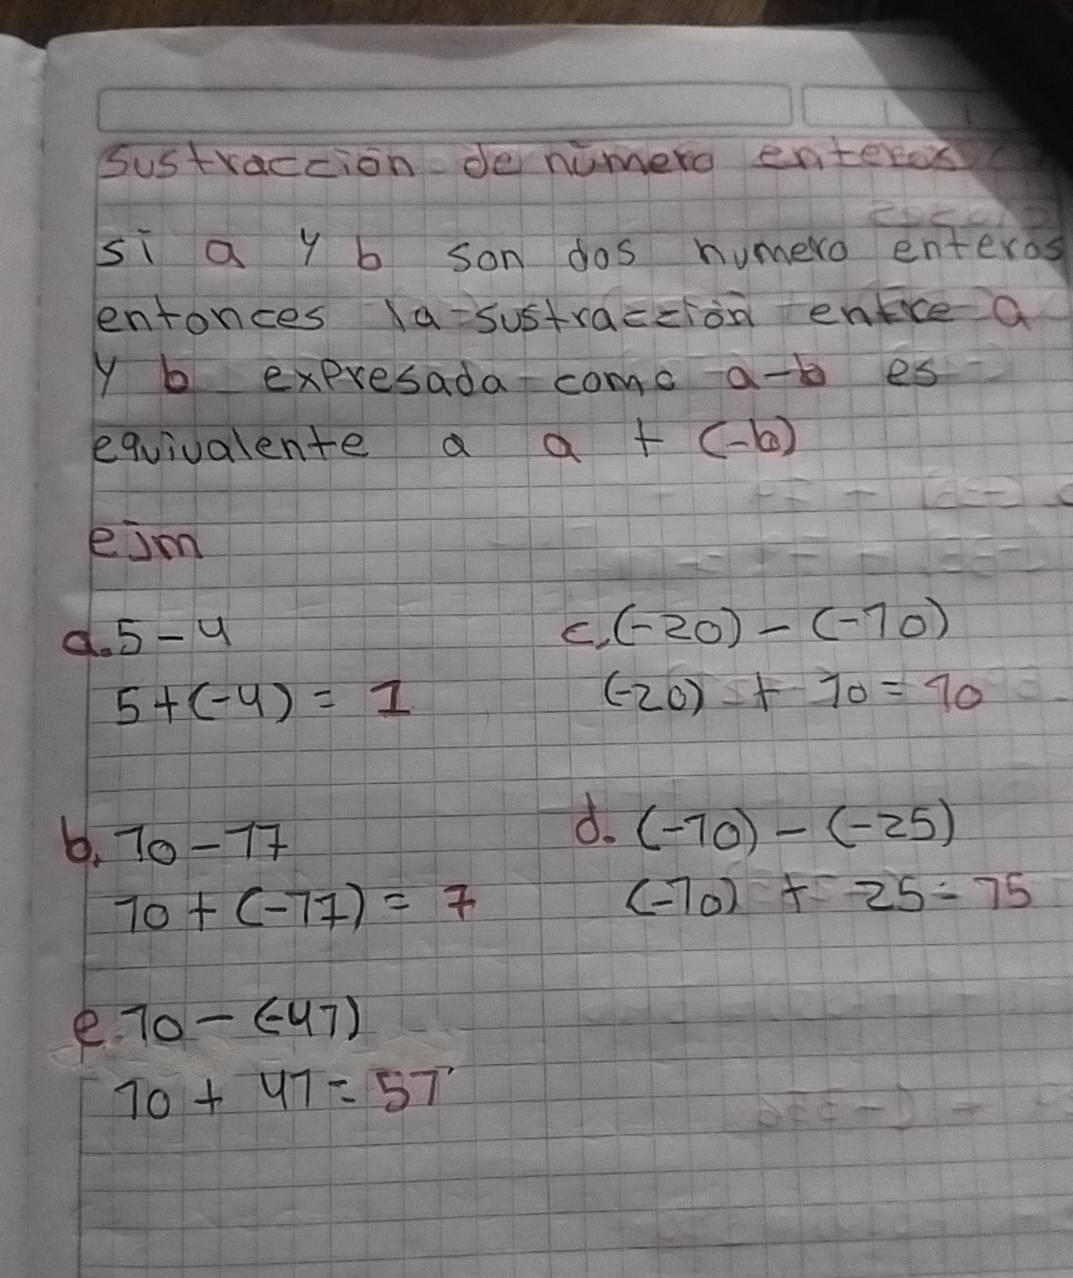 Sustracción de número enteros
si a y b son dos numero enteros
entonces la sustracción entre a
y b expresada como a-b es
equivalente a a + (-b)
ejm
a. 5-4
5+(-4) = 1
b. 10-17
10+(-17) = 7
c. (-20)-(-10)
(-20) + 10 = 10
d. (-10)-(-25)
(-10) + 25 = 15
e. 10-(-41)
10 + 41 = 51